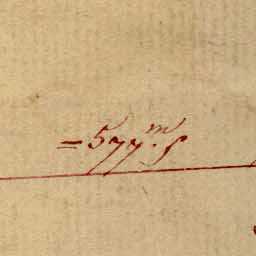 = 577.m